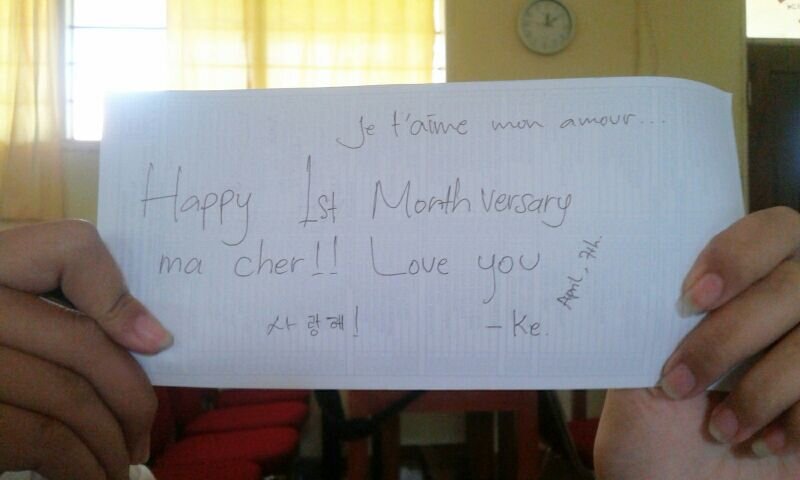 Je t'aime mon amour...
Happy 1st Monthversary
ma cher!! Love you
April, 7th.
사랑해!
- Ke.